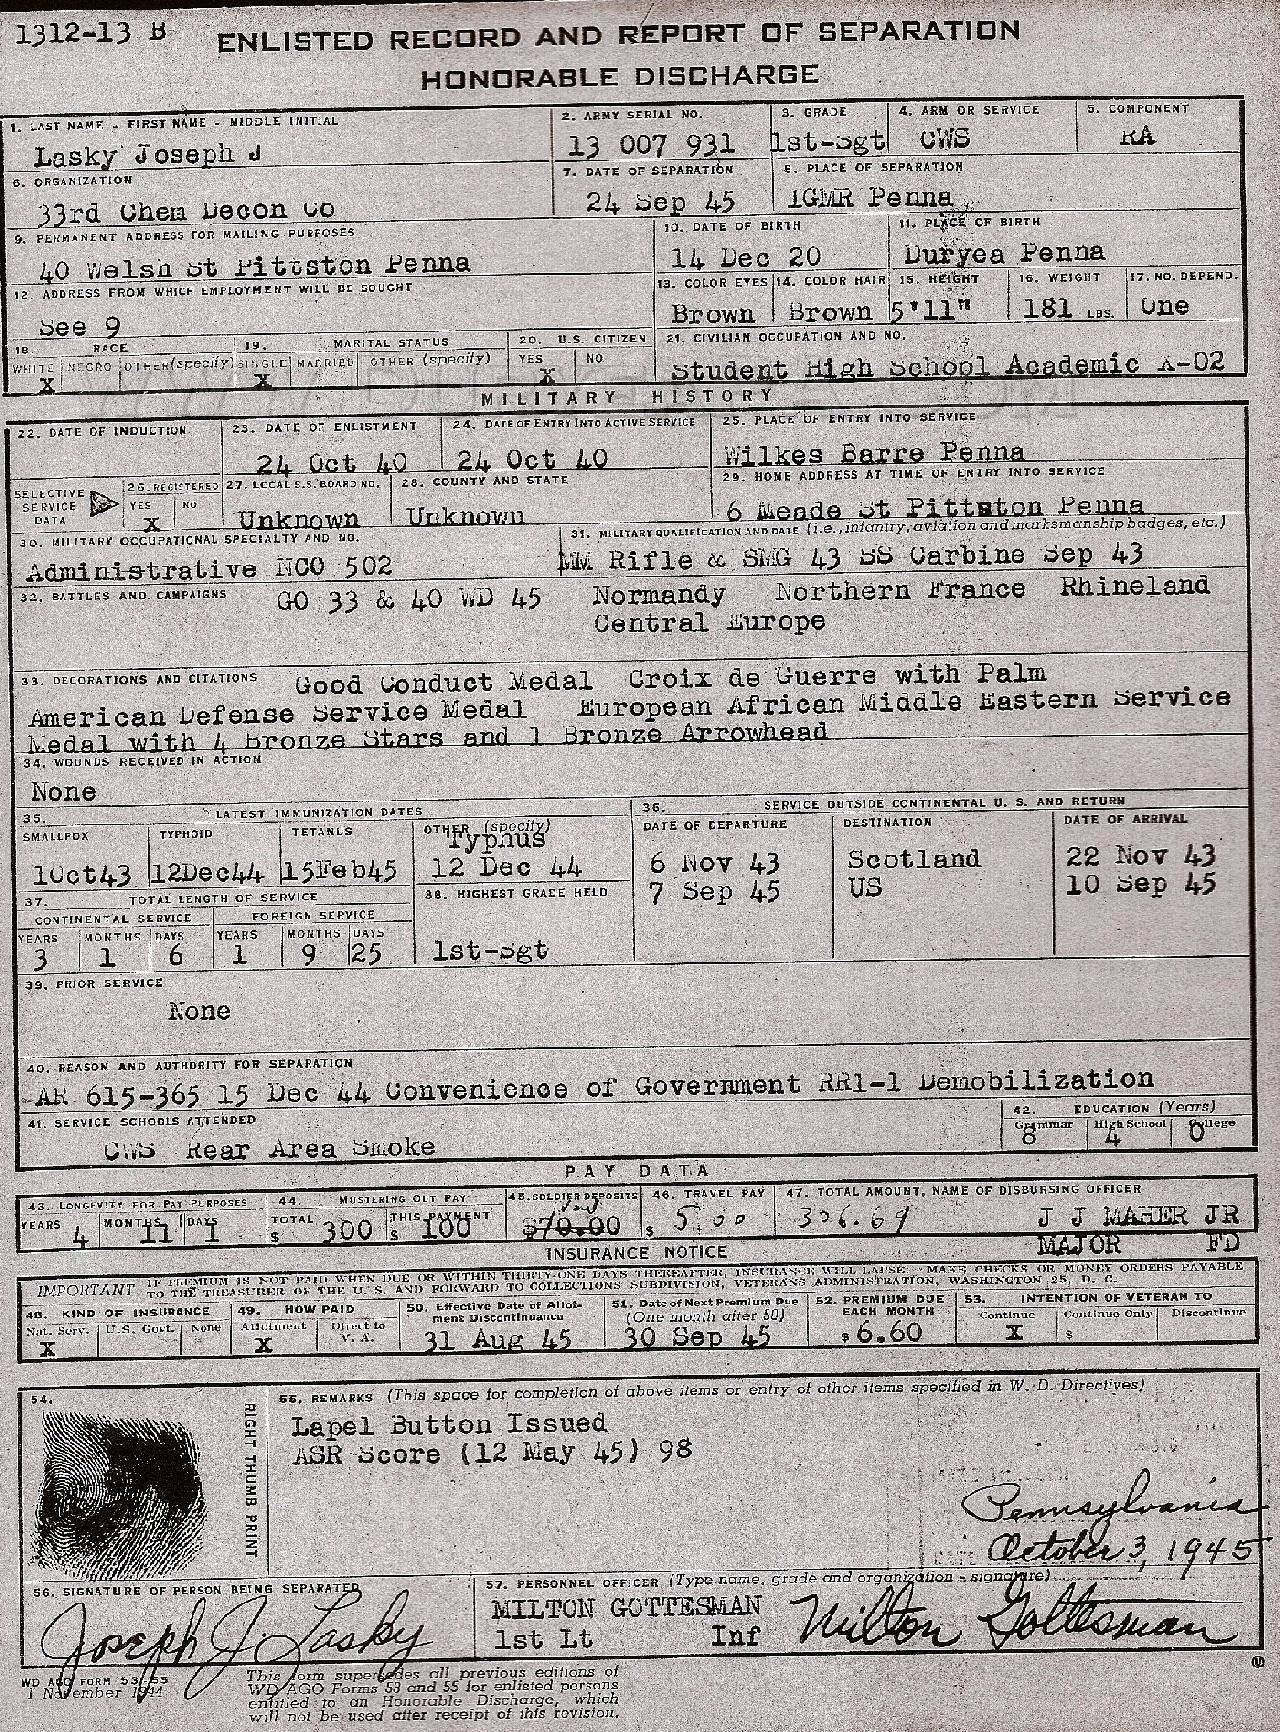 1312-13 B
ENLISTED RECORD AND REPORT OF SEPARATION
HONORABLE DISCHARGE
1. LAST NAME - FIRST NAME - MIDDLE INITIAL
Lasky Joseph J
2. ARMY SERIAL NO.
13 007 931
3. GRADE
1st-Sgt
4. ARM OR SERVICE
CWS
5. COMPONENT
RA
6. ORGANIZATION
33rd Chem Decon Co
7. DATE OF SEPARATION
24 Sep 45
8. PLACE OF SEPARATION
IGMR Penna
9. PERMANENT ADDRESS FOR MAILING PURPOSES
40 Welsh St Pittston Penna
10. DATE OF BIRTH
14 Dec 20
11. PLACE OF BIRTH
Duryea Penna
12. ADDRESS FROM WHICH EMPLOYMENT WILL BE SOUGHT
See 9
13. COLOR EYES
Brown
14. COLOR HAIR
Brown
15. HEIGHT
5'11"
16. WEIGHT
181 LBS.
17. NO. DEPEND.
One
18. RACE
WHITE NEGRO OTHER (specify)
X
19. MARITAL STATUS
SINGLE MARRIED OTHER (specify)
X
20. U.S. CITIZEN
YES NO
X
21. CIVILIAN OCCUPATION AND NO.
Student High School Academic X-02
MILITARY HISTORY
22. DATE OF INDUCTION
23. DATE OF ENLISTMENT
24 Oct 40
24. DATE OF ENTRY INTO ACTIVE SERVICE
24 Oct 40
25. PLACE OF ENTRY INTO SERVICE
Wilkes Barre Penna
SELECTIVE SERVICE DATA
26. REGISTERED
YES NO
X
27. LOCAL S.S. BOARD NO.
Unknown
28. COUNTY AND STATE
Unknown
29. HOME ADDRESS AT TIME OF ENTRY INTO SERVICE
6 Meade St Pittston Penna
30. MILITARY OCCUPATIONAL SPECIALTY AND NO.
Administrative NCO 502
31. MILITARY QUALIFICATION AND DATE (i.e., infantry, aviation and marksmanship badges, etc.)
MM Rifle & SMG 43 SS Carbine Sep 43
32. BATTLES AND CAMPAIGNS
GO 33 & 40 WD 45 Normandy Northern France Rhineland
Central Europe
33. DECORATIONS AND CITATIONS
Good Conduct Medal Croix de Guerre with Palm
American Defense Service Medal European African Middle Eastern Service
Medal with 4 Bronze Stars and 1 Bronze Arrowhead
34. WOUNDS RECEIVED IN ACTION
None
35. LATEST IMMUNIZATION DATES
SMALLPOX TYPHOID TETANUS OTHER (specify)
Typhus
1Oct43 12Dec44 15Feb45 12 Dec 44
36. SERVICE OUTSIDE CONTINENTAL U. S. AND RETURN
DATE OF DEPARTURE DESTINATION DATE OF ARRIVAL
6 Nov 43 Scotland 22 Nov 43
7 Sep 45 US 10 Sep 45
37. TOTAL LENGTH OF SERVICE
CONTINENTAL SERVICE FOREIGN SERVICE
YEARS MONTHS DAYS YEARS MONTHS DAYS
3 1 6 1 9 25
38. HIGHEST GRADE HELD
1st-Sgt
39. PRIOR SERVICE
None
40. REASON AND AUTHORITY FOR SEPARATION
AR 615-365 15 Dec 44 Convenience of Government RR1-1 Demobilization
41. SERVICE SCHOOLS ATTENDED
CWS Rear Area Smoke
42. EDUCATION (Years)
Grammar High School College
8 4 0
PAY DATA
43. LONGEVITY FOR PAY PURPOSES
YEARS MONTHS DAYS
4 11 1
44. MUSTERING OUT PAY
TOTAL THIS PAYMENT
$ 300 $ 100
45. SOLDIER DEPOSITS
$70.00
46. TRAVEL PAY
$ 5.00
47. TOTAL AMOUNT, NAME OF DISBURSING OFFICER
J J MAHER JR
MAJOR FD
INSURANCE NOTICE
IMPORTANT IF PREMIUM IS NOT PAID WHEN DUE OR WITHIN THIRTY-ONE DAYS THEREAFTER, INSURANCE WILL LAPSE. MAKE CHECKS OR MONEY ORDERS PAYABLE
TO THE TREASURER OF THE U. S. AND FORWARD TO COLLECTIONS SUBDIVISION, VETERANS ADMINISTRATION, WASHINGTON 25, D. C.
48. KIND OF INSURANCE
Nat. Serv. U.S. Govt. None
X
49. HOW PAID
Allotment Direct to V. A.
X
50. Effective Date of Allotment Discontinuance
31 Aug 45
51. Date of Next Premium Due (One month after 50)
30 Sep 45
52. PREMIUM DUE EACH MONTH
$ 6.60
53. INTENTION OF VETERAN TO
Continue Continue Only Discontinue
X $
54.
RIGHT THUMB PRINT
55. REMARKS (This space for completion of above items or entry of other items specified in W. D. Directives)
Lapel Button Issued
ASR Score (12 May 45) 98
Pennsylvania
October 3, 1945
56. SIGNATURE OF PERSON BEING SEPARATED
Joseph J. Lasky
57. PERSONNEL OFFICER (Type name, grade and organization - signature)
MILTON GOTTESMAN
1st Lt Inf
Milton Gottesman
WD AGO FORM 53-55
1 November 1944
This form supersedes all previous editions of
WD AGO Forms 53 and 55 for enlisted persons
entitled to an Honorable Discharge, which
will not be used after receipt of this revision.